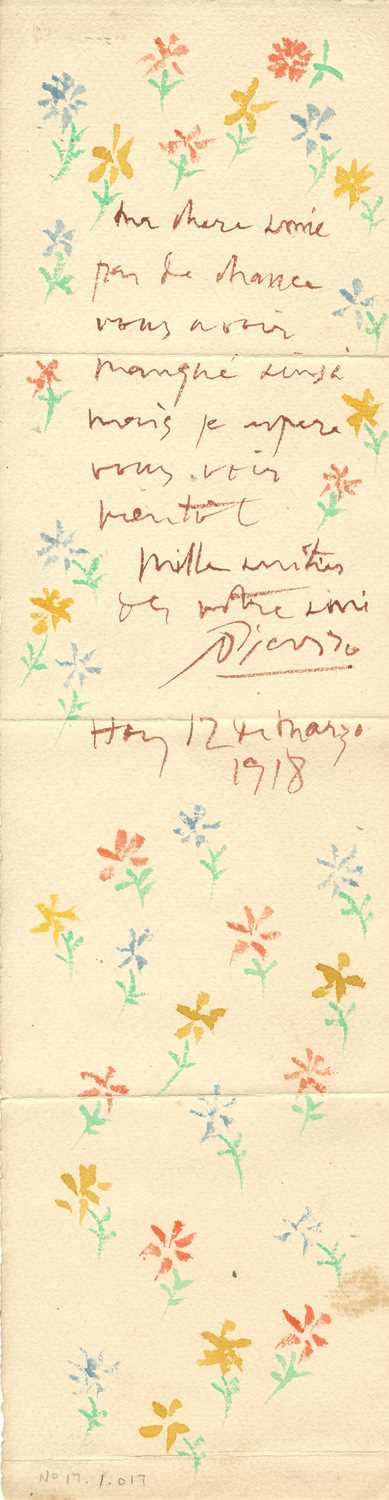 ma chere amie
pas de chance
vous avoir
manqué ainsi
mais je espere
vous voir
vientot
Mille amities
de votre ami
Picasso
Hoy 12 de Marzo
1918
No 17.1.017